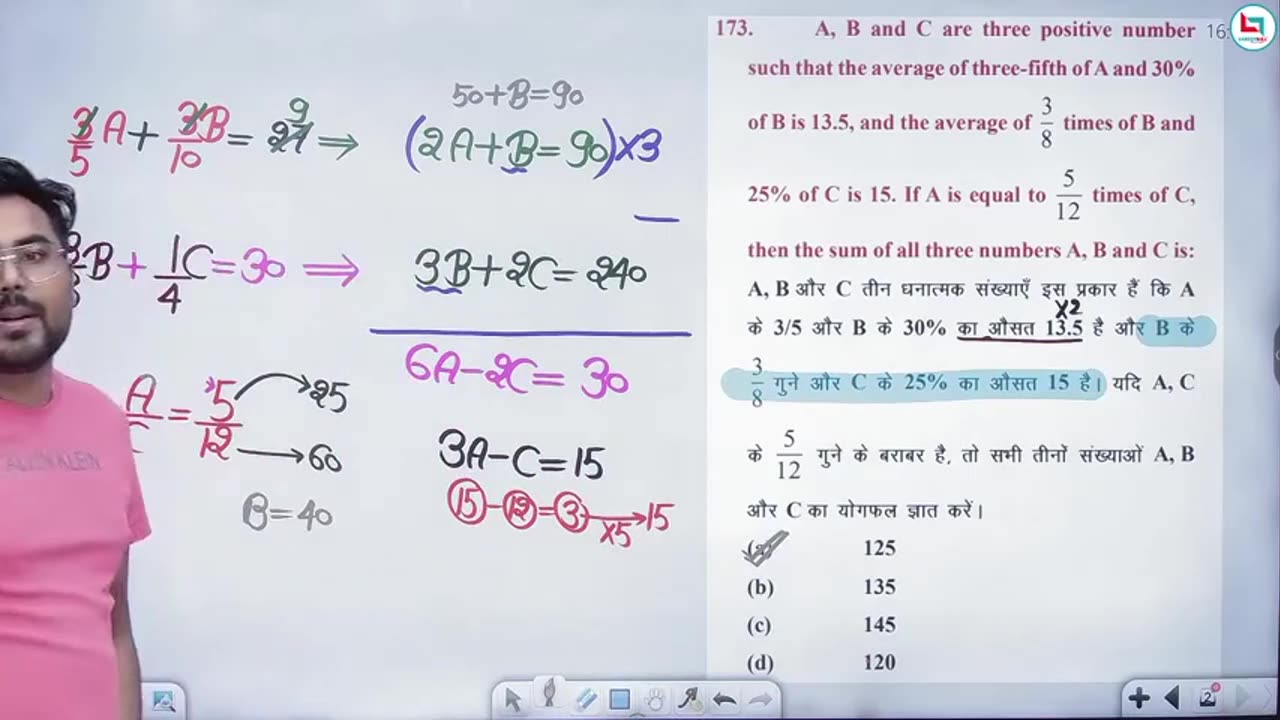 50+B=90
3/5 A + 3/10 B = 27 9 ⇒ (2A+B=90)×3
—
3/8 B + 1/4 C = 30 ⇒ 3B+2C=240
6A-2C=30
A = 5/12 → 25
→ 60
3A-C=15
B=40
15 - 12 = 3 ×5 → 15
CALVIN KLEIN
173. A, B and C are three positive number
such that the average of three-fifth of A and 30%
of B is 13.5, and the average of 3/8 times of B and
25% of C is 15. If A is equal to 5/12 times of C,
then the sum of all three numbers A, B and C is:
A, B और C तीन धनात्मक संख्याएँ इस प्रकार हैं कि A
×2
के 3/5 और B के 30% का औसत 13.5 है और B के
3/8 गुने और C के 25% का औसत 15 है। यदि A, C
के 5/12 गुने के बराबर है, तो सभी तीनों संख्याओं A, B
और C का योगफल ज्ञात करें।
(a) 125
(b) 135
(c) 145
(d) 120
16:
2